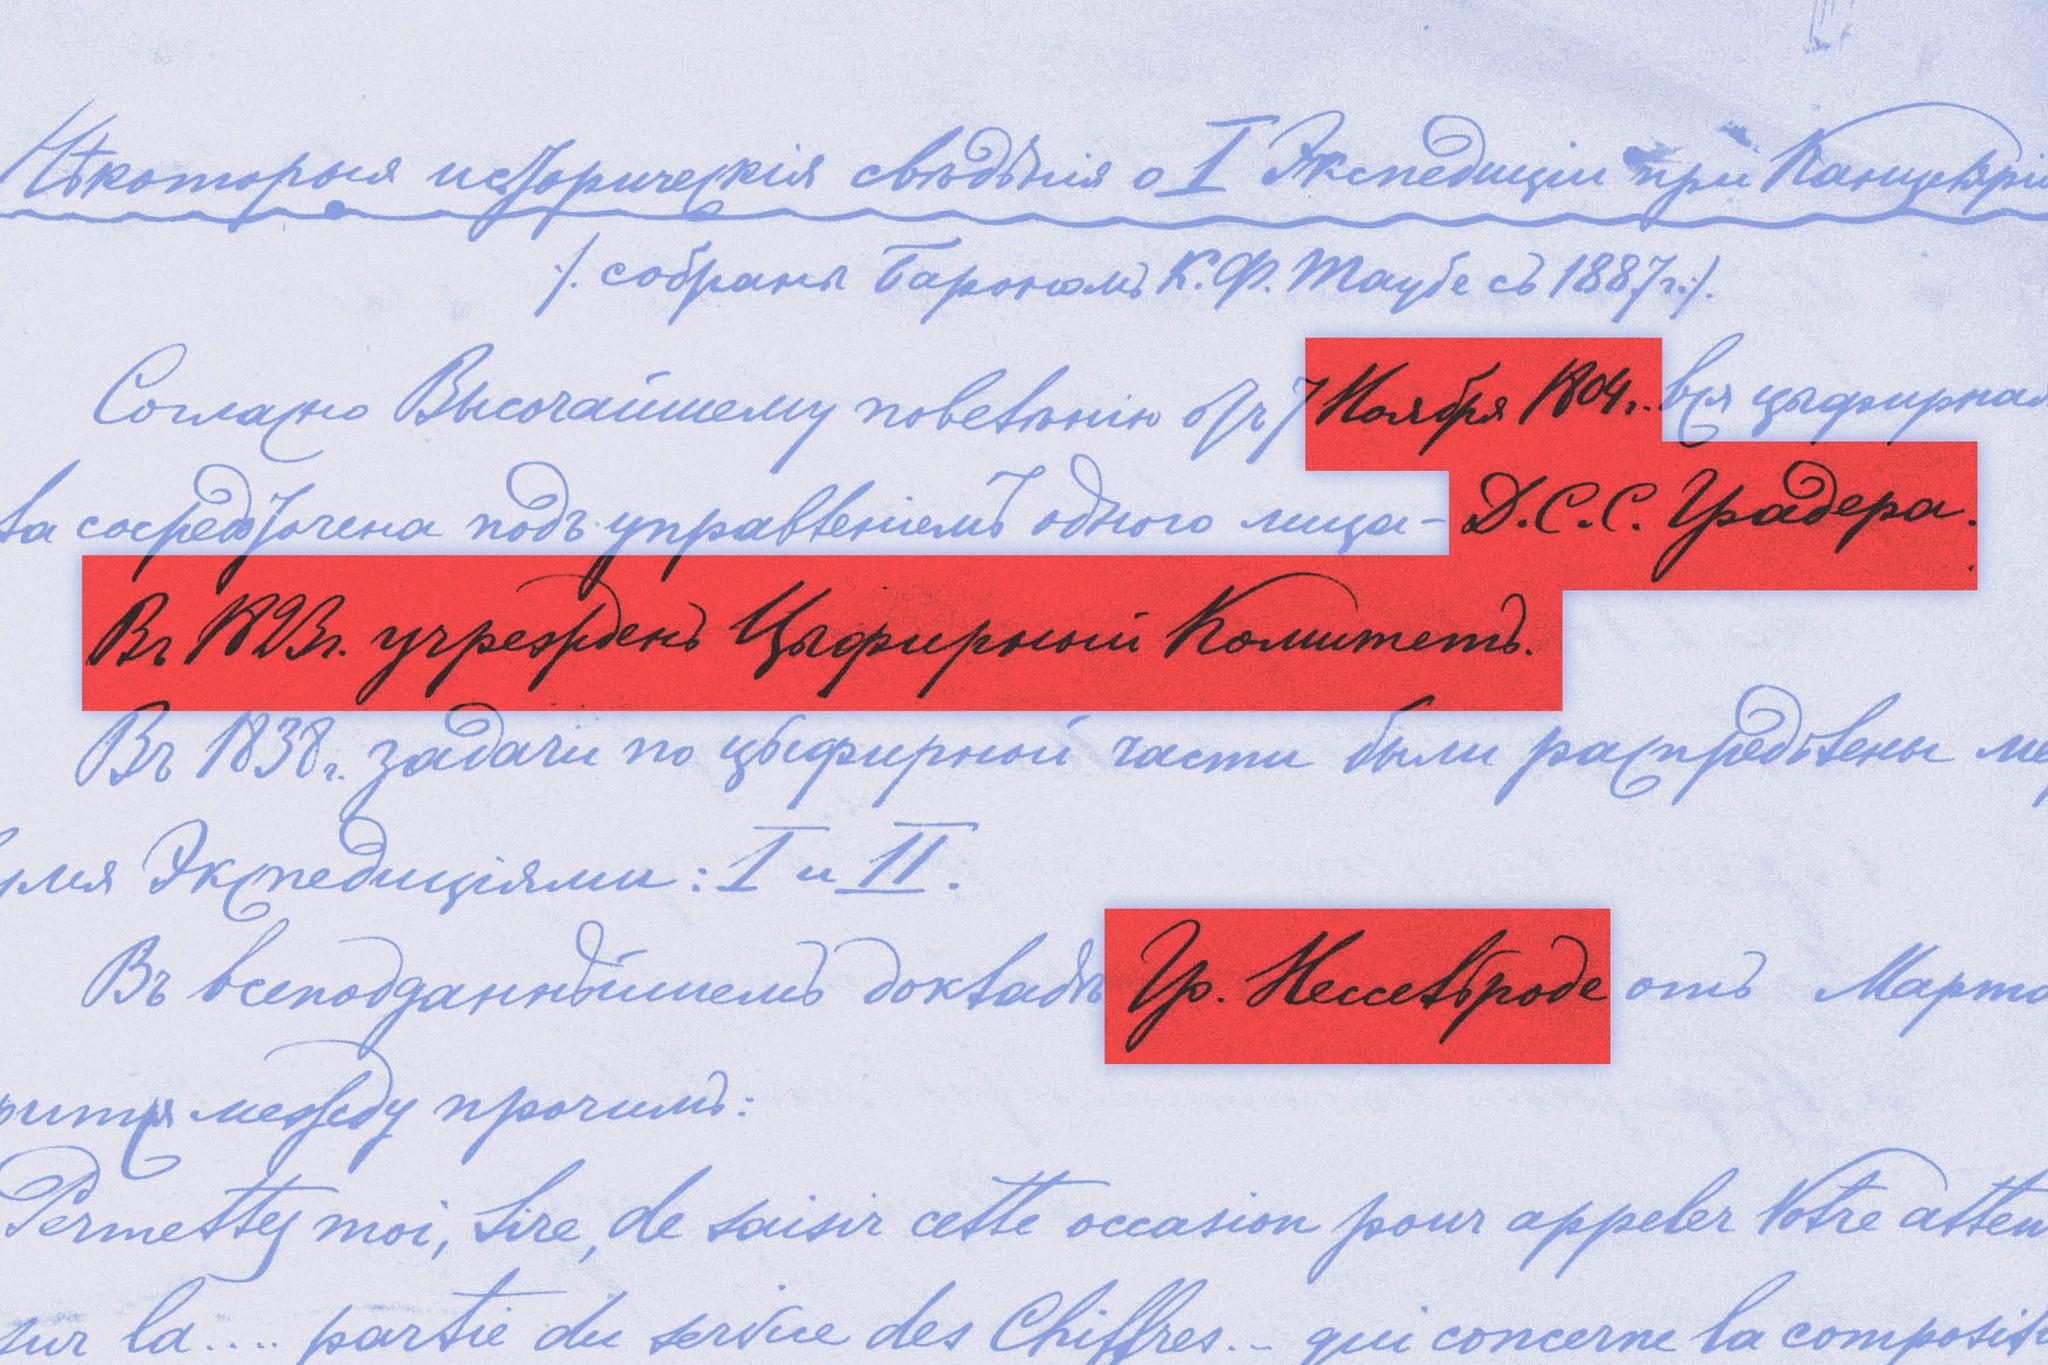 Нѣкоторыя историческія свѣдѣнія о I Экспедиціи при Канцеляріи
/. собраны Барономъ К. Ф. Таубе съ 1887г. /.
Согласно Высочайшему повелѣнію отъ 7 Ноября 1804г. вся цыфирная
та сосредоточена подъ управленіемъ одного лица – Д.С.С. Градера.
Въ 1823г. учрежденъ Цыфирный Комитетъ.
Въ 1838г. задачи по цыфирной части были распредѣлены ме
умя Экспедиціями: I и II.
Въ всеподданнѣйшемъ докладѣ Гр. Нессельроде отъ Марта
рится между прочимъ:
Permettez moi, Sire, de saisir cette occasion pour appeler Votre atten
sur la.... partie du service des Chiffres... qui concerne la composit